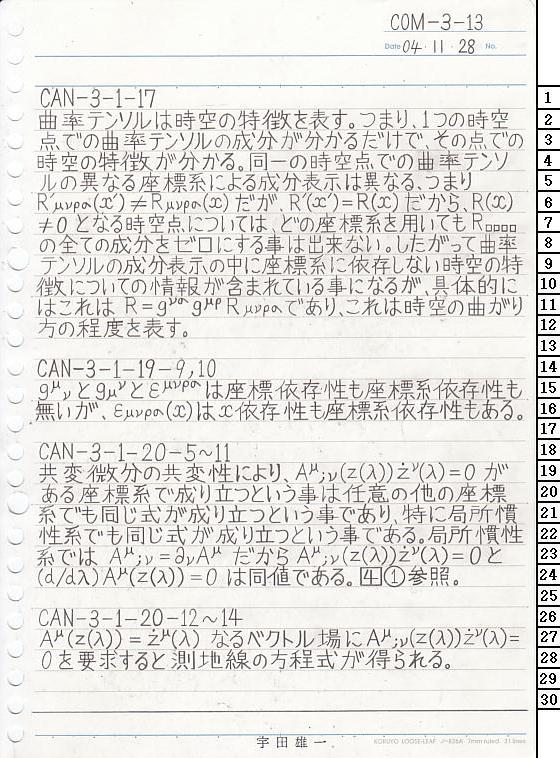 COM-3-13
Date 04・11・28 No.
CAN-3-1-17
曲率テンソルは時空の特徴を表す。つまり、1つの時空
点での曲率テンソルの成分が分かるだけで、その点での
時空の特徴が分かる。同一の時空点での曲率テンソ
ルの異なる座標系による成分表示は異なる、つまり
R'μνρσ(x')≠Rμνρσ(x)だが、R'(x')=R(x)だから、R(x)
≠0となる時空点については、どの座標系を用いてもR□□□□
の全ての成分をゼロにする事は出来ない。したがって曲率
テンソルの成分表示の中に座標系に依存しない時空の特
徴についての情報が含まれている事になるが、具体的に
はこれは R=g^νσ g^μρ Rμνρσであり、これは時空の曲がり
方の程度を表す。
CAN-3-1-19-9,10
g^μ_νとg_μ^νとε^μνρσは座標依存性も座標系依存性も
無いが、εμνρσ(x)はx依存性も座標系依存性もある。
CAN-3-1-20-5~11
共変微分の共変性により、A^μ;ν(z(λ))ż^ν(λ)=0 が
ある座標系で成り立つという事は任意の他の座標
系でも同じ式が成り立つという事であり、特に局所慣
性系でも同じ式が成り立つという事である。局所慣性
系では A^μ;ν=∂νA^μ だから A^μ;ν(z(λ))ż^ν(λ)=0と
(d/dλ)A^μ(z(λ))=0 は同値である。囲①参照。
CAN-3-1-20-12~14
A^μ(z(λ))=ż^μ(λ) なるベクトル場にA^μ;ν(z(λ))ż^ν(λ)=
0を要求すると測地線の方程式が得られる。
宇田雄一
KOKUYO LOOSE-LEAF ノ-836A 7mm ruled 31 lines
1
2
3
4
5
6
7
8
9
10
11
12
13
14
15
16
17
18
19
20
21
22
23
24
25
26
27
28
29
30